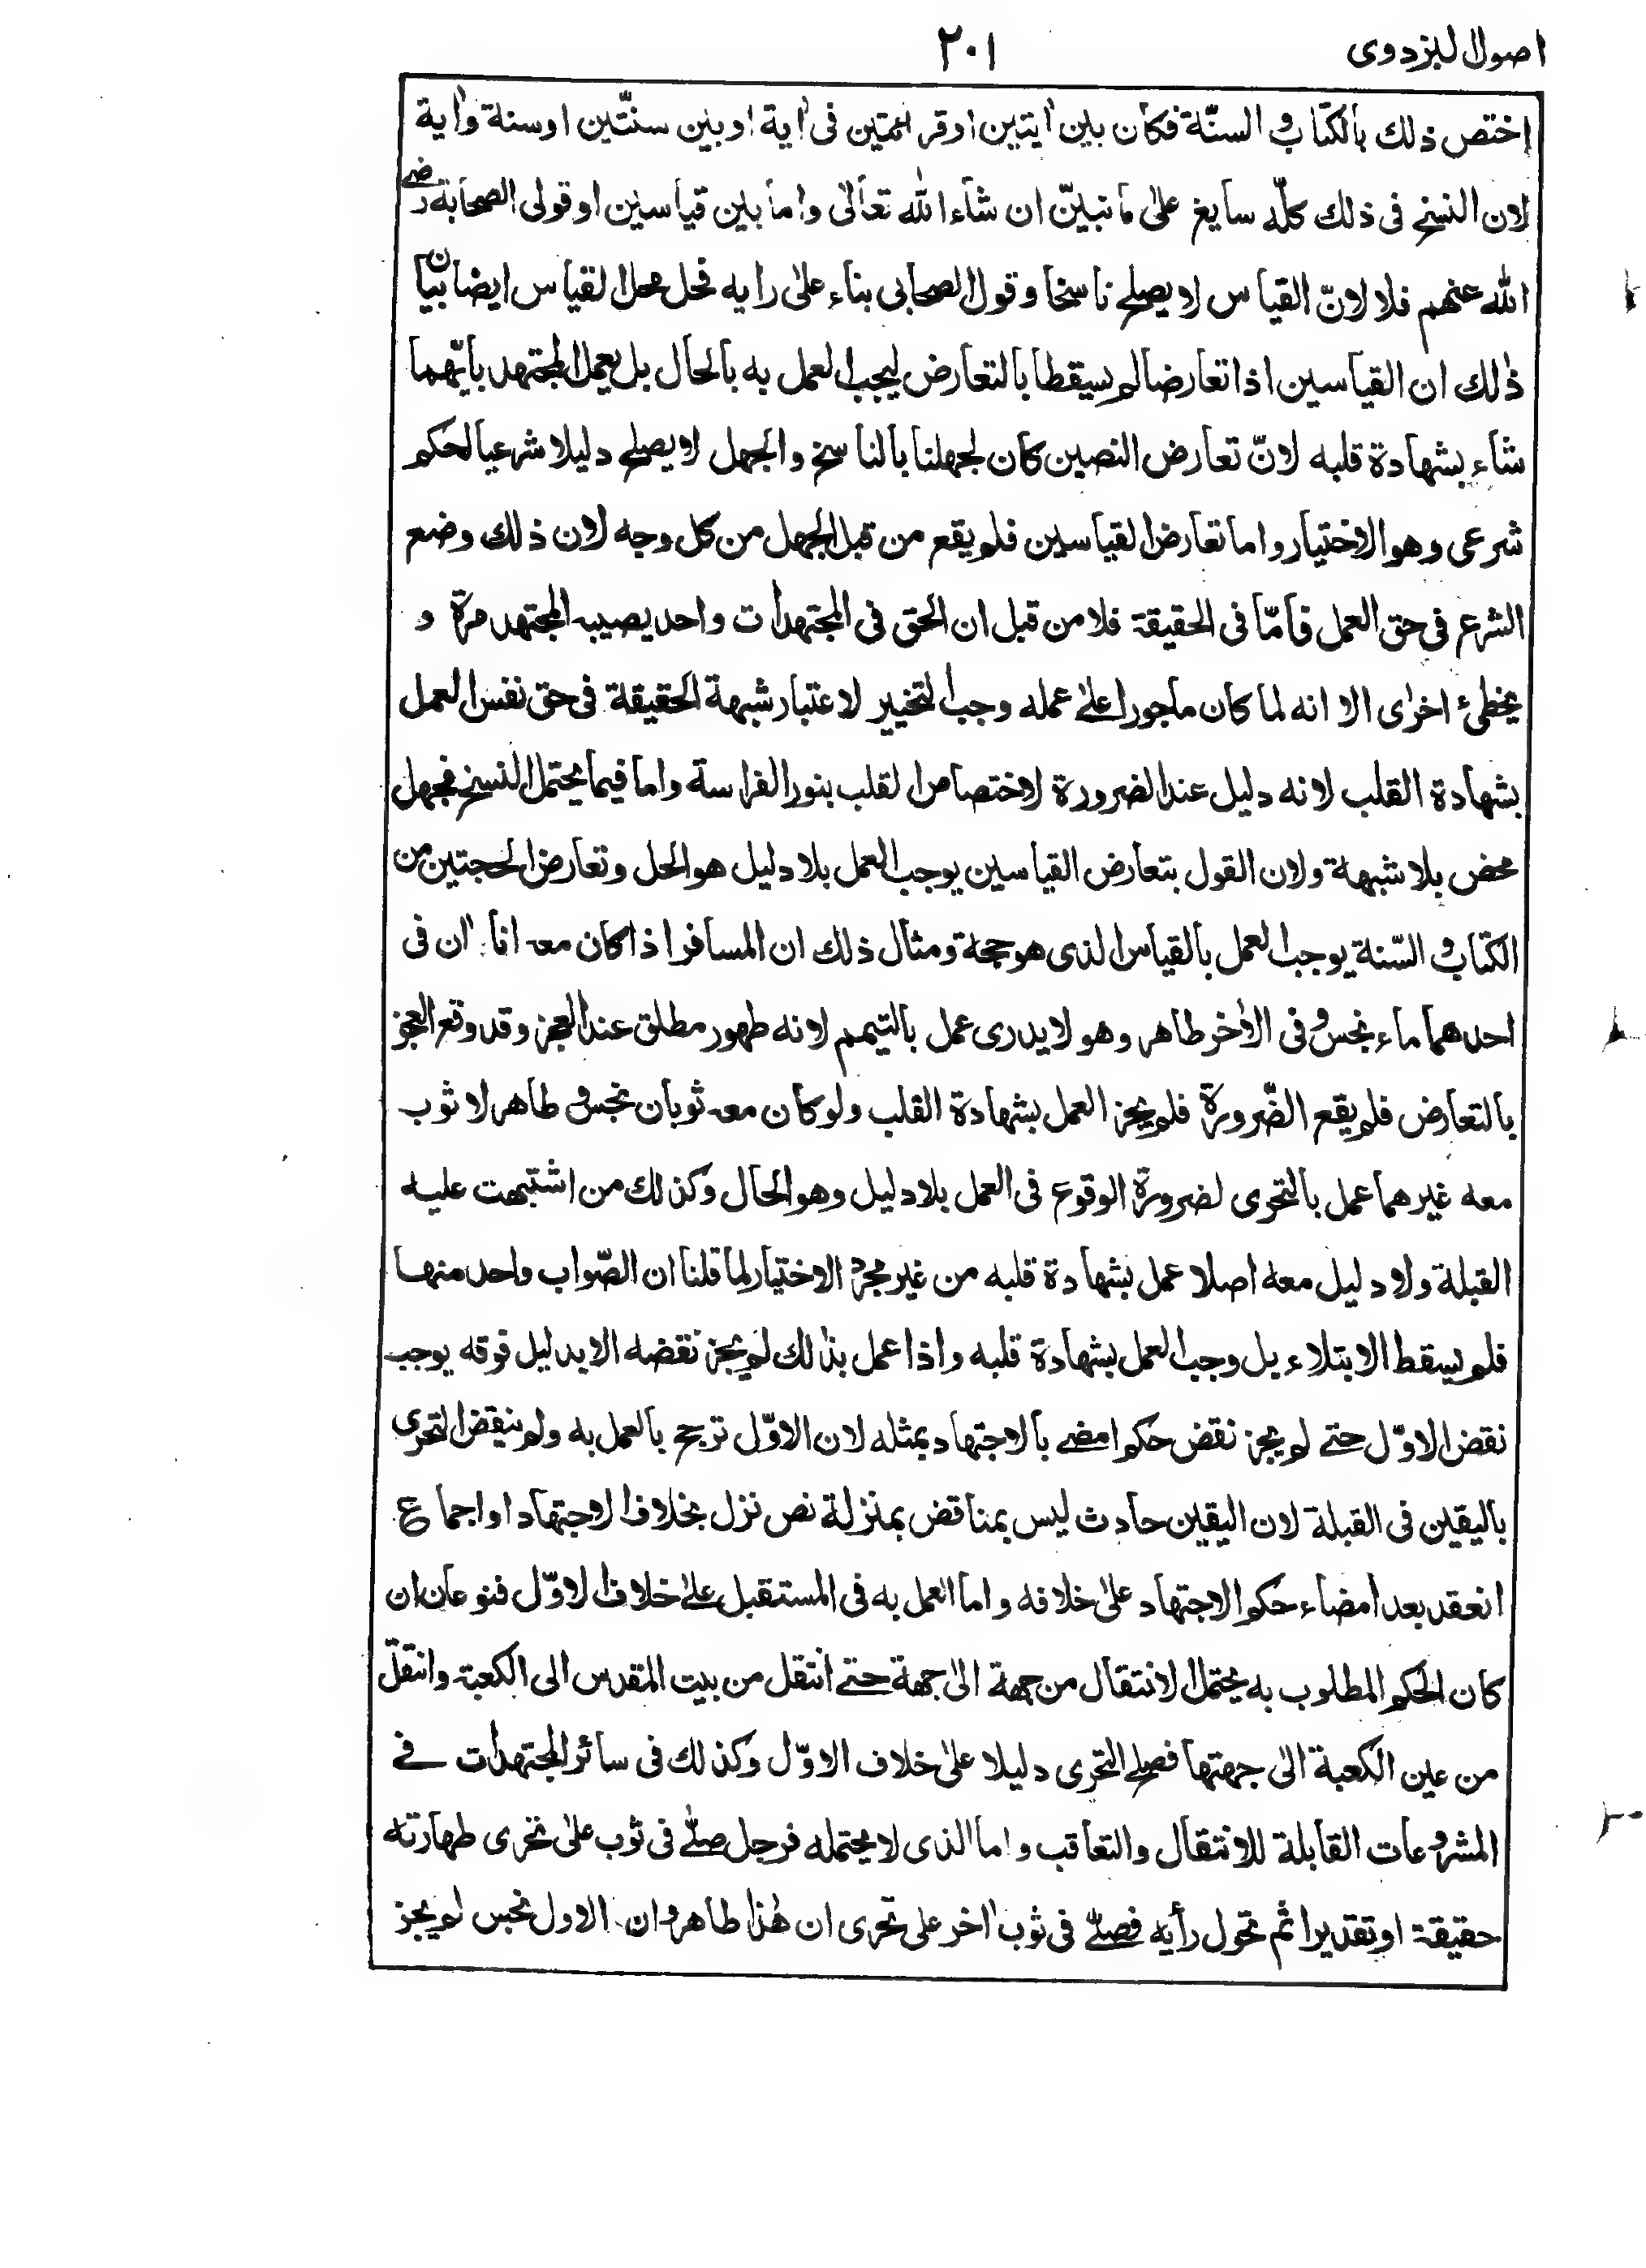 اصول البزدوی ٢٠١
اختص ذلك بالكتاب و السنّة فكان بين ايتين او قرائتين فى اية او بين سنّتين او سنة واية
لان النسخ فى ذلك كلّه سايغ على ما نبيّن ان شاء الله تعالى واما بين قياسين او قولى الصحابة رضى
الله عنهم فلا لانّ القياس لا يصلح ناسخا وقول الصحابى بناء على رايه فحل محل القياس ايضا بيان
ذلك ان القياسين اذا تعارضا لم يسقطا بالتعارض ليجب العمل به بالحال بل يعمل المجتهد بايّهما
شاء بشهادة قلبه لانّ تعارض النصين كان لجهلنا بالناسخ والجهل لا يصلح دليلا شرعيا لحكم
شرعى وهو الاختيار واما تعارض القياسين فلم يقع من قبل الجهل من كل وجه لان ذلك وضع
الشرع فى حق العمل فامّا فى الحقيقة فلا من قبل ان الحق فى المجتهدات واحد يصيبه المجتهد مرة و
يخطئ اخرى الا انه لما كان ماجورا على عمله وجب التخيير لاعتبار شبهة الحقيقة فى حق نفس العمل
بشهادة القلب لانه دليل عند الضرورة لاختصاص القلب بنور الفراسة واما فيما يحتمل النسخ فجهل
محض بلا شبهة ولان القول بتعارض القياسين يوجب العمل بلا دليل هو الحل وتعارض الحجتين من
الكتاب و السّنة يوجب العمل بالقياس الذى هو حجة ومثال ذلك ان المسافر اذا كان معه اناءان فى
احدهما ماء نجس و فى الأخر طاهر وهو لا يدرى عمل بالتيمم لانه طهور مطلق عند العجز وقد وقع العجز
بالتعارض فلم يقع الضّرورة فلم يجز العمل بشهادة القلب ولو كان معه ثوبان نجس و طاهر لا ثوب
معه غيرهما عمل بالتحرى لضرورة الوقوع فى العمل بلا دليل وهو الحال وكذلك من اشتبهت عليه
القبلة ولا دليل معه اصلا عمل بشهادة قلبه من غير مجرد الاختيار لما قلنا ان الصّواب واحد منها
فلم يسقط الابتلاء بل وجب العمل بشهادة قلبه واذا عمل بذلك لم يجز نقضه الا بدليل فوقه يوجب
نقض الاوّل حتى لم يجز نقض حكم امضى بالاجتهاد بمثله لان الاوّل ترجح بالعمل به ولم ينقض التحرى
باليقين فى القبلة لان اليقين حادث ليس بمناقض بمنزلة نص نزل بخلاف الاجتهاد او اجماع
انعقد بعد امضاء حكم الاجتهاد على خلافه واما العمل به فى المستقبل على خلاف الاوّل فنوعان ان
كان الحكم المطلوب به يحتمل الانتقال من جهة الى جهة حتى انتقل من بيت المقدس الى الكعبة وانتقل
من عين الكعبة الى جهتها فصلح التحرى دليلا على خلاف الاوّل وكذلك فى سائر المجتهدات فى
المشروعات القابلة للانتقال والتعاقب واما الذى لا يحتمله فرجل صلّى فى ثوب على تحرى طهارته
حقيقة او تقديرا ثم تحول رأيه فصلّى فى ثوب اخر على تحرى ان هذا طاهر و ان الاول نجس لم يجز